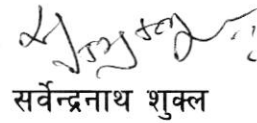 सर्वेन्द्रनाथ शुक्ल